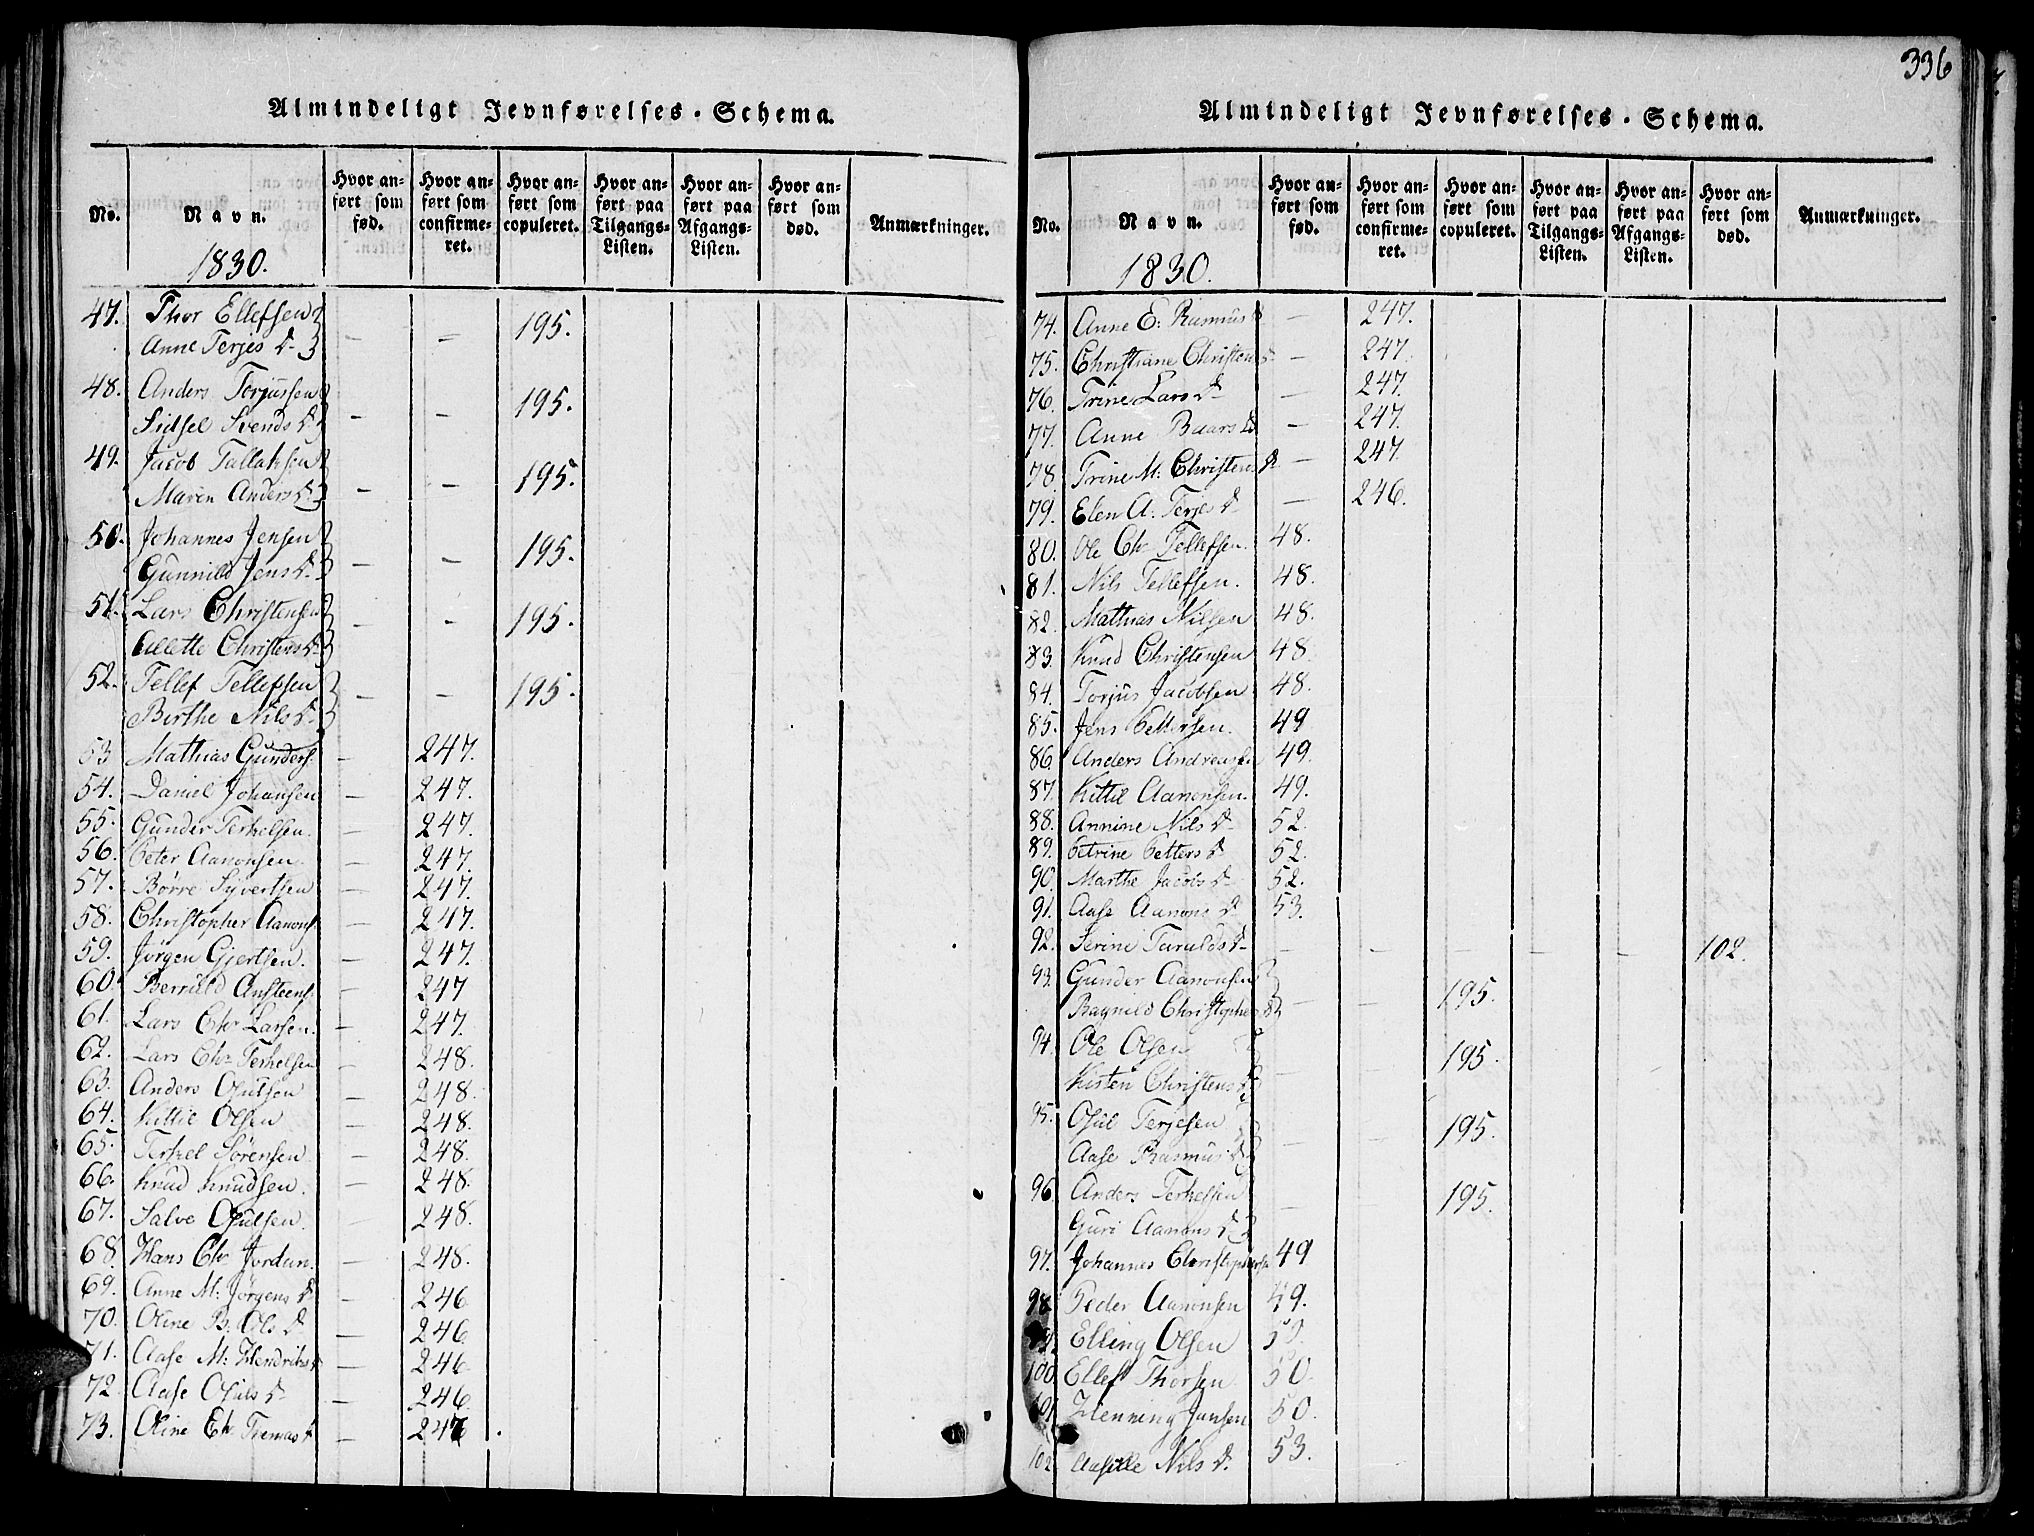 Almindeligt Jevnførelses-Schema.
No. Navn. Hvor anført som fød. Hvor anført som confirmeret. Hvor anført som copuleret. Hvor anført paa Tilgangs-Listen. Hvor anført paa Afgangs-Listen. Hvor anført som død. Anmærkninger.
1830.
47. Thor Ellefsen
Anne Terjes D. — — 195.
48. Anders Torjussen
Sidsel Svends D. — — 195.
49. Jacob Tallaksen
Maren Anders D. — — 195.
50. Johannes Jensen
Gunnild Jens D. — — 195.
51. Lars Christensen
Christens D. — — 195.
52. Tellef Tellefsen
Birthe Nils D. — — 195.
53 Mathias Gunders. — 247.
54. Daniel Johansen — 247.
55. Gunder Terkelsen. — 247.
56. Peter Aanonsen. — 247.
57. Børre Syvertsen — 247.
58. Christopher Aanons. — 247.
59. Jørgen Gjertsen. — 247.
60. Berruld Ansteens. — 247
61. Lars Chr Larsen. — 247.
62. Lars Chr. Terkelsen — 248.
63. Anders Osulsen — 248.
64. Kittil Olsen — 248.
65. Terkel Sørensen — 248.
66. Knud Knudsen. — 248.
67. Salve Osulsen. — 248.
68. Hans Chr. Jordan. — 248.
69. Anne M: Jørgens D. — 246
70. Oline B. Ols D. — 246.
71. Aase M: Hendriks D. — 246
72. Aase Osuls D. — 246.
73. Oline Thomas D. — 247.
336
Almindeligt Jevnførelses-Schema.
No. Navn. Hvor anført som fød. Hvor anført som confirmeret. Hvor anført som copuleret. Hvor anført paa Tilgangs-Listen. Hvor anført paa Afgangs-Listen. Hvor anført som død. Anmærkninger.
1830.
74. Anne E: Rasmus D. — 247.
75. Christiane Christens D. — 247.
76. Trine Lars D. — 247.
77. Anne Baars D. — 247.
78. Trine M: Christens D. — 247.
79. Elen A: Terjes D. — 246.
80. Ole Chr. Tellefsen. 48.
81. Nils Tellefsen. 48.
82. Mathias Nilsen 48.
83. Knud Christensen 48.
84. Torjus Jacobsen 48.
85. Jens Pettersen. 49
86. Anders Andreasen 49.
87. Kittil Aanonsen. 49.
88. Annine Nils D. 52.
89. Petrine Petters D. 52.
90. Marthe Jacobs D. 52.
91. Aase Aanons D. 53.
92. Serine Taralds D. — — — — — 102.
93. Gunder Aanonsen
Ragnild Christophers D. — — 195.
94. Ole Olsen
Kirsten Christens D. — 195.
95. Osul Terjesen
Aase Rasmus D. — — 195.
96. Anders Terkelsen
Guri Aanons D. — — 195.
97. Johannes Christophersen 49
98. Peder Aanonsen 49.
Elling Olsen 50.
100. Ellef Thorsen 50.
101. Henning Jansen 50.
102. Nils D. 53.